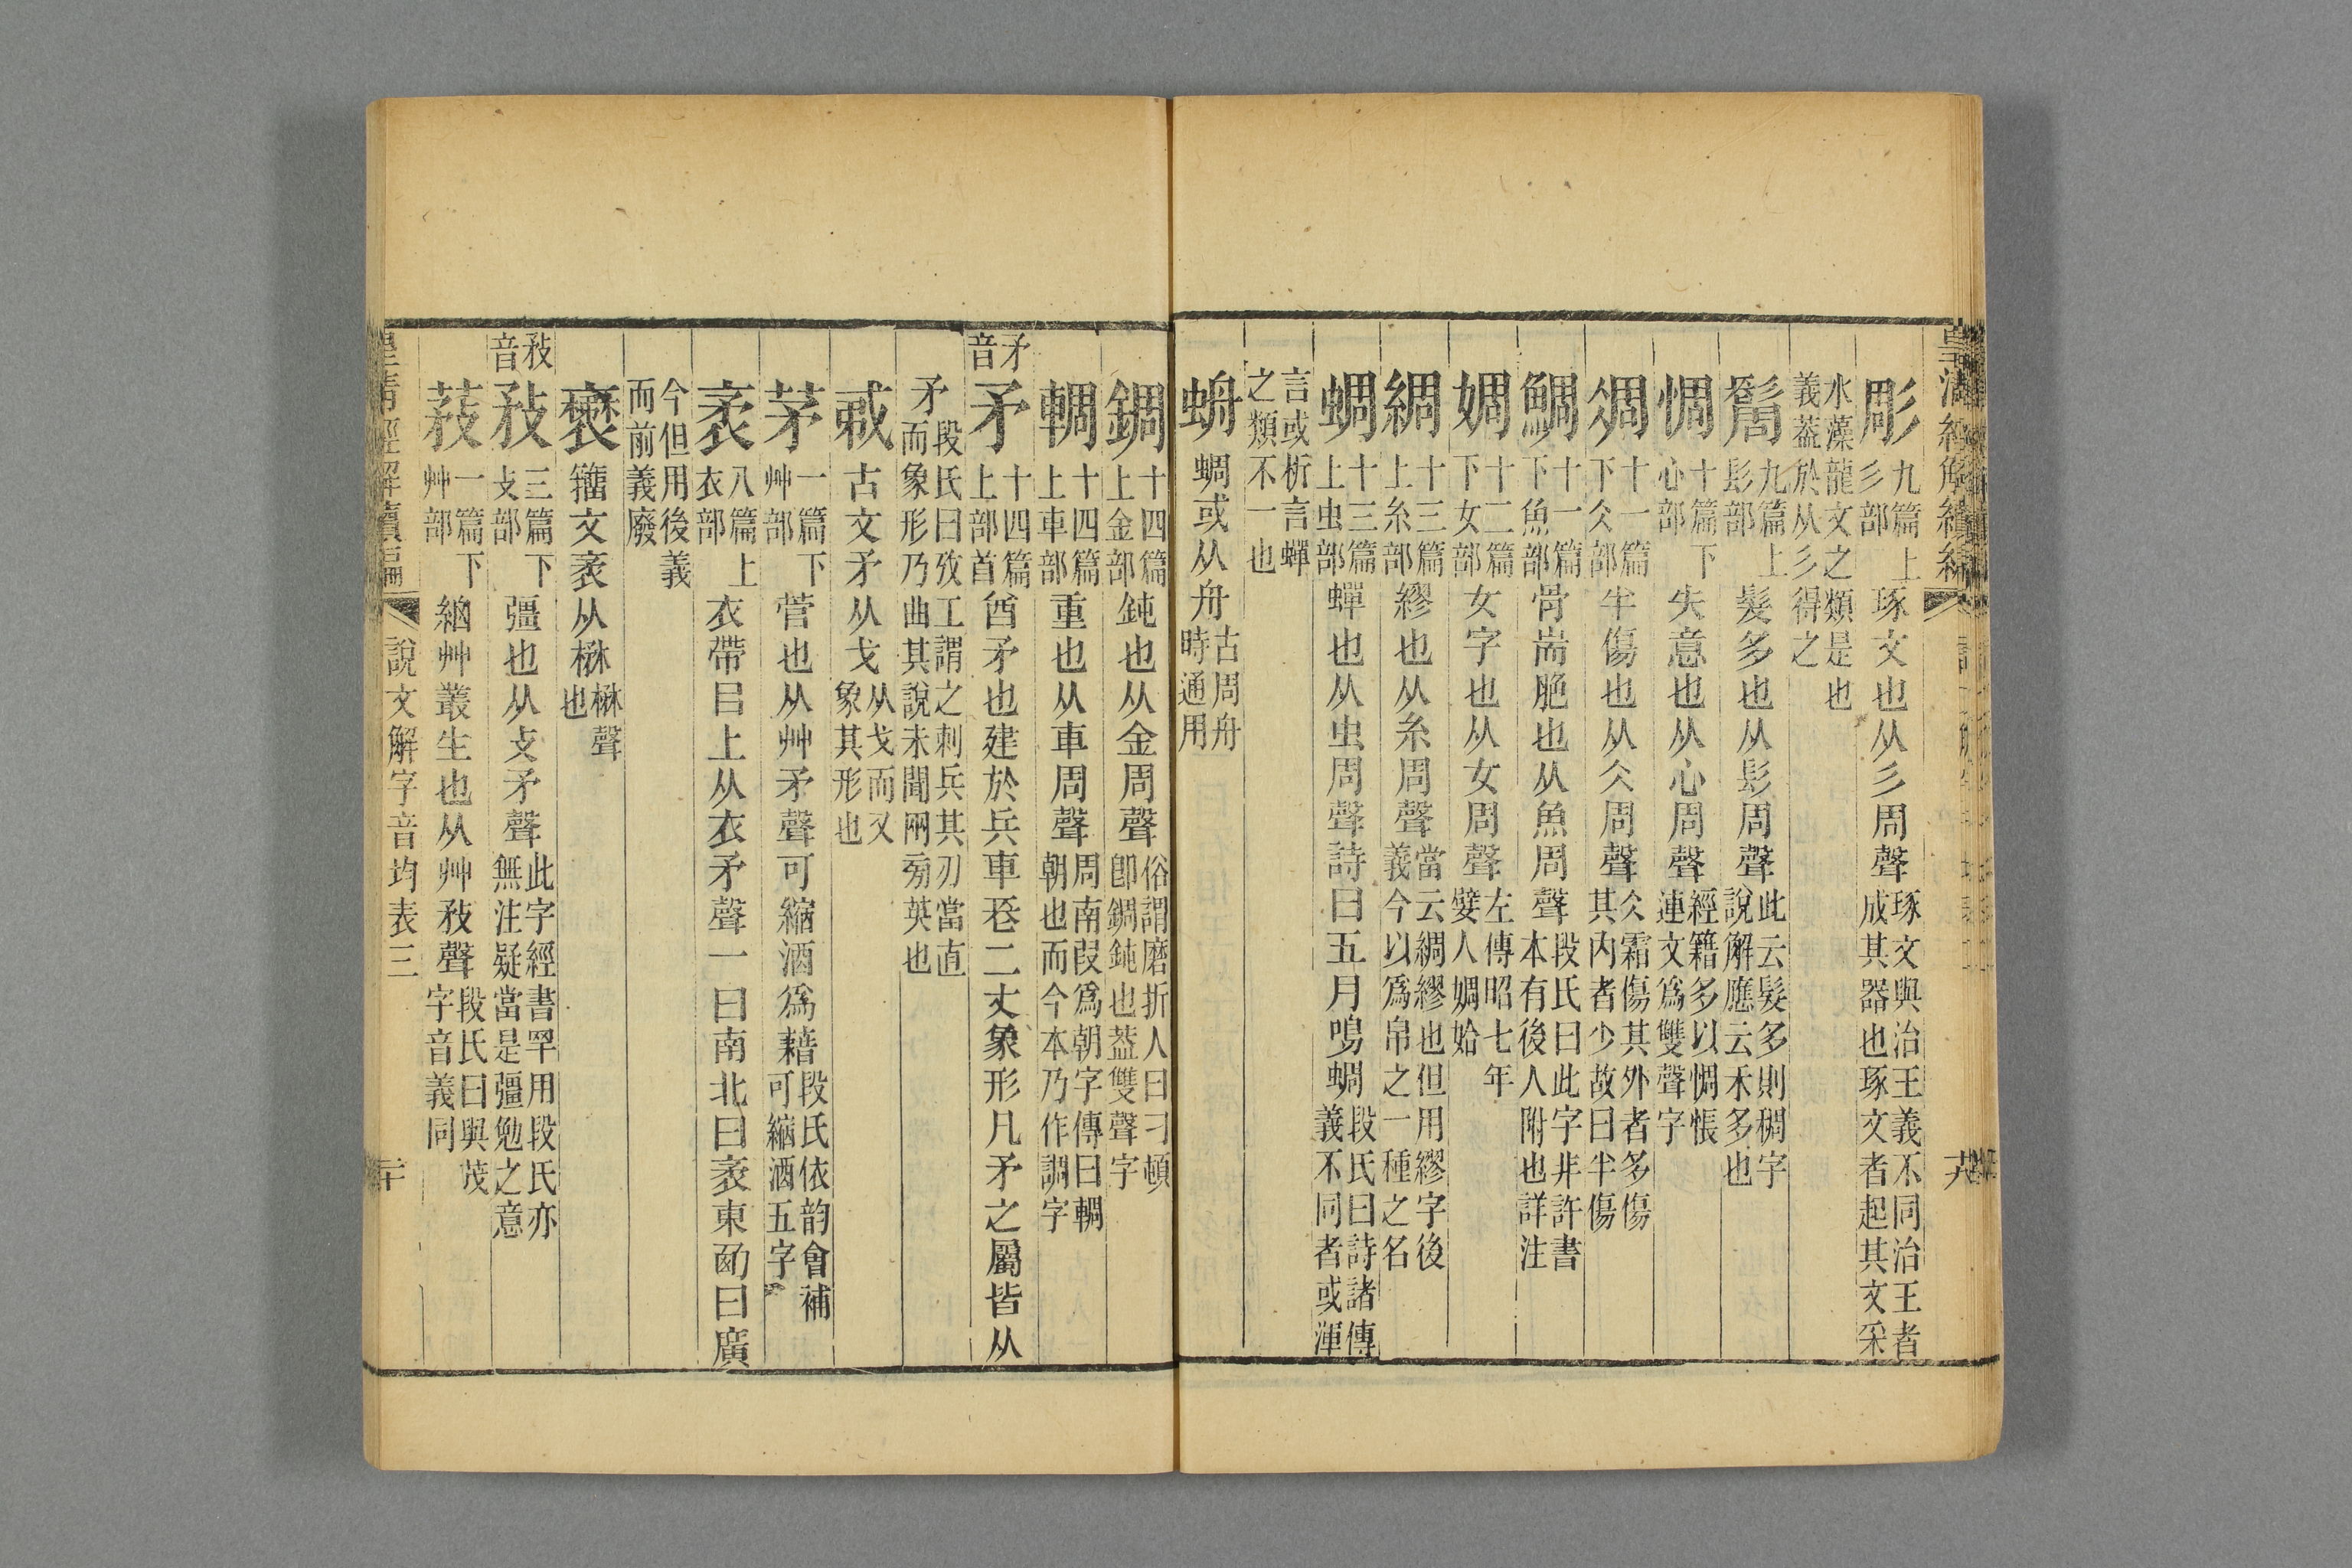 彫九篇上彡部琢文也从彡周聲琢文與治玉義不同治玉者成其器也琢文者起其文采
水藻龍文之類是也義葢於从彡得之
鬜九篇上髟部髮多也从髟周聲此云髮多則稠字說解應云禾多也
惆十篇下心部失意也从心周聲經籍多以惆悵連文爲雙聲字
凋十一篇下仌部半傷也从仌周聲仌霜傷其外者多傷其内者少故曰半傷
鯛十一篇下魚部骨耑脃也从魚周聲段氏曰此字非許書本有後人附也詳注
婤十二篇下女部女字也从女周聲左傳昭七年嬖人婤姶
綢十三篇上糸部繆也从糸周聲當云綢繆也但用繆字後義今以爲帛之一種之名
蜩十三篇上虫部蟬也从虫周聲詩曰五月鳴蜩段氏曰詩諸傳義不同者或渾
言或析言蟬之類不一也
蚦蜩或从舟古周舟時通用
錭十四篇上金部鈍也从金周聲俗謂磨折人曰刁頓卽錭鈍也葢雙聲字
輖十四篇上車部重也从車周聲周南叚爲朝字傳曰輖朝也而今本乃作調字
矛音矛十四篇上部首酋矛也建於兵車𠄞二丈象形凡矛之屬皆从
矛段氏曰攷工謂之刺兵其刃當直而象形乃曲其說未聞㒳㫄英也
𢦧古文矛从戈从戈而又象其形也
茅一篇下艸部菅也从艸矛聲可縮酒爲藉段氏依韵會補可縮酒五字
袤八篇上衣部衣帶㠯上从衣矛聲一曰南北曰袤東西曰廣
今但用後義而前義廢
𧝬籒文袤从楙楙聲也
敄音敄三篇下攴部彊也从攴矛聲此字經書罕用段氏亦無注疑當是彊勉之意
蓩一篇下艸部細艸叢生也从艸敄聲段氏曰與茂字音義同
皇清經解續編
說文解字音均表三
二十